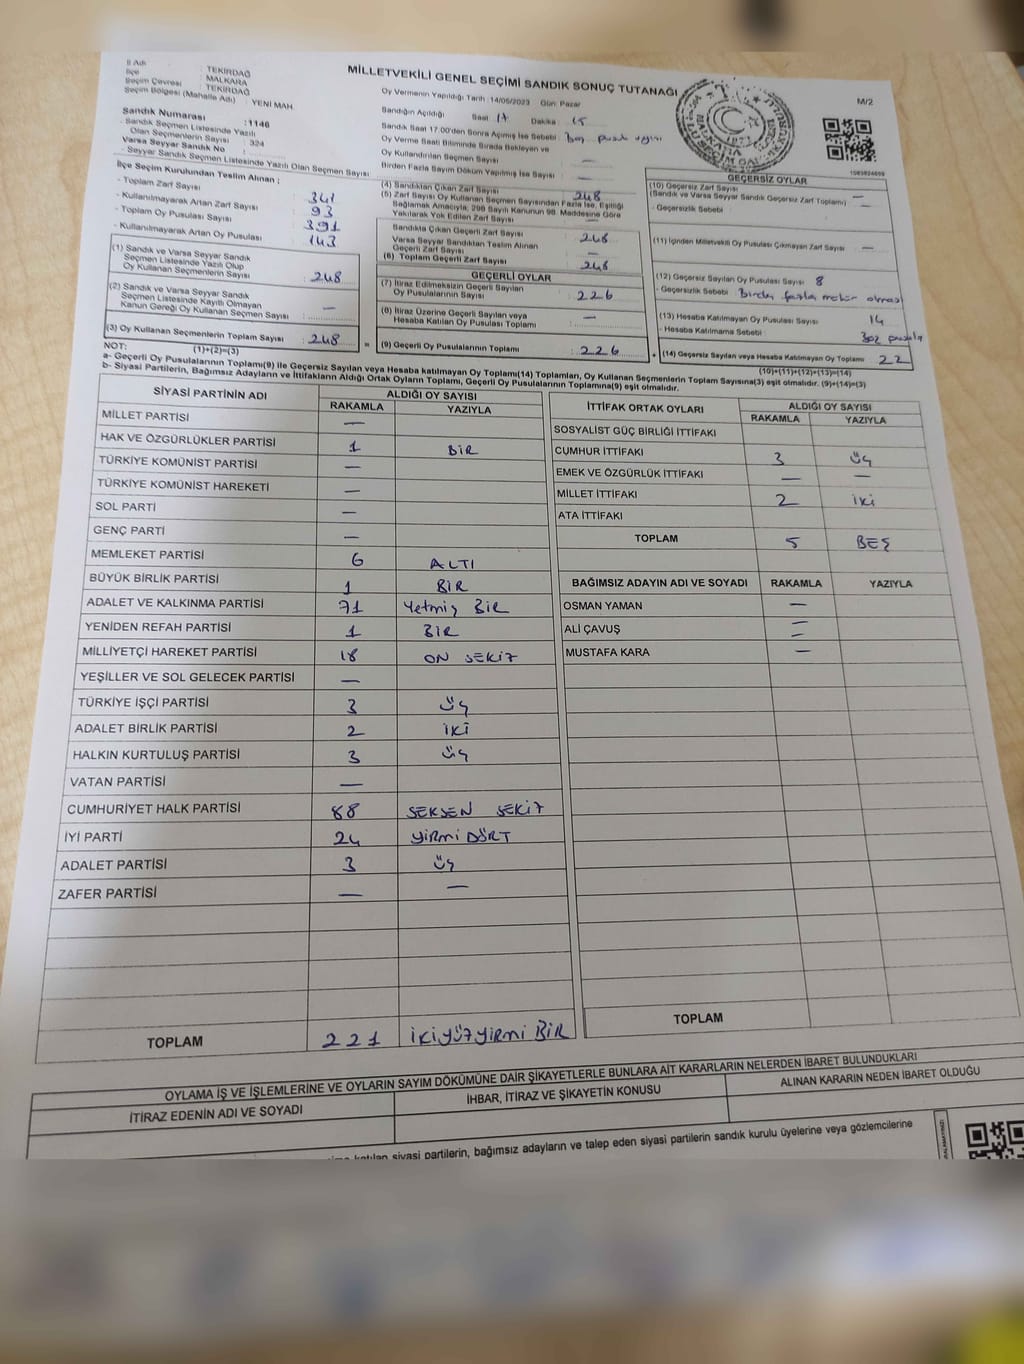 İl Adı : TEKİRDAĞ
İlçe : MALKARA
Seçim Çevresi : TEKİRDAĞ
Seçim Bölgesi (Mahalle Adı) : YENİ MAH
MİLLETVEKİLİ GENEL SEÇİMİ SANDIK SONUÇ TUTANAĞI
M/2
Sandık Numarası :1146
- Sandık Seçmen Listesinde Yazılı
Olan Seçmenlerin Sayısı : 324
Varsa Seyyar Sandık No :
- Seyyar Sandık Seçmen Listesinde Yazılı Olan Seçmen Sayısı
Oy Vermenin Yapıldığı Tarih :14/05/2023 Gün: Pazar
Sandığın Açıldığı Saat 17 Dakika 15
Sandık Saat 17.00'den Sonra Açılmış İse Sebebi :
Oy Verme Saati Bitiminde Sırada Bekleyen ve
Oy Kullandırılan Seçmen Sayısı —
Birden Fazla Sayım Döküm Yapılmış İse Sayısı : —
İlçe Seçim Kurulundan Teslim Alınan ;
- Toplam Zarf Sayısı : 341
- Kullanılmayarak Artan Zarf Sayısı : 93
- Toplam Oy Pusulası Sayısı : 391
- Kullanılmayarak Artan Oy Pusulası : 143
(1) Sandık ve Varsa Seyyar Sandık
Seçmen Listesinde Yazılı Olup
Oy Kullanan Seçmenlerin Sayısı : 248
(2) Sandık ve Varsa Seyyar Sandık
Seçmen Listesinde Kayıtlı Olmayan
Kanun Gereği Oy Kullanan Seçmen Sayısı : —
(3) Oy Kullanan Seçmenlerin Toplam Sayısı : 248
(1)+(2)=(3)
(4) Sandıktan Çıkan Zarf Sayısı : 248
(5) Zarf Sayısı Oy Kullanan Seçmen Sayısından Fazla İse, Eşitliği
Sağlamak Amacıyla, 298 Sayılı Kanunun 98. Maddesine Göre
Yakılarak Yok Edilen Zarf Sayısı : —
Sandıkta Çıkan Geçerli Zarf Sayısı : 248
Varsa Seyyar Sandıktan Teslim Alınan
Geçerli Zarf Sayısı : —
(6) Toplam Geçerli Zarf Sayısı : 248
GEÇERLİ OYLAR
(7) İtiraz Edilmeksizin Geçerli Sayılan
Oy Pusulalarının Sayısı : 226
(8) İtiraz Üzerine Geçerli Sayılan veya
Hesaba Katılan Oy Pusulası Toplamı : —
(9) Geçerli Oy Pusulalarının Toplamı : 226
GEÇERSİZ OYLAR
(10) Geçersiz Zarf Sayısı
(Sandık ve Varsa Seyyar Sandık Geçersiz Zarf Toplamı) : —
- Geçersizlik Sebebi : —
(11) İçinden Milletvekili Oy Pusulası Çıkmayan Zarf Sayısı : —
(12) Geçersiz Sayılan Oy Pusulası Sayısı 8
- Geçersizlik Sebebi : Birden fazla mühür olması
(13) Hesaba Katılmayan Oy Pusulası Sayısı 14
- Hesaba Katılmama Sebebi : Boş pusula
(14) Geçersiz Sayılan veya Hesaba Katılmayan Oy Toplamı 22
(10)+(11)+(12)+(13)=(14)
NOT:
a- Geçerli Oy Pusulalarının Toplamı(9) İle Geçersiz Sayılan veya Hesaba katılmayan Oy Toplamı(14) Toplamları, Oy Kullanan Seçmenlerin Toplam Sayısına(3) eşit olmalıdır. (9)+(14)=(3)
b- Siyasi Partilerin, Bağımsız Adayların ve İttifakların Aldığı Ortak Oyların Toplamı, Geçerli Oy Pusulalarının Toplamına(9) eşit olmalıdır.
SİYASİ PARTİNİN ADI ALDIĞI OY SAYISI
RAKAMLA YAZIYLA
MİLLET PARTİSİ —
HAK VE ÖZGÜRLÜKLER PARTİSİ 1 BİR
TÜRKİYE KOMÜNİST PARTİSİ —
TÜRKİYE KOMÜNİST HAREKETİ —
SOL PARTİ —
GENÇ PARTİ —
MEMLEKET PARTİSİ 6 ALTI
BÜYÜK BİRLİK PARTİSİ 1 BİR
ADALET VE KALKINMA PARTİSİ 71 Yetmiş BİR
YENİDEN REFAH PARTİSİ 1 BİR
MİLLİYETÇİ HAREKET PARTİSİ 18 ON SEKİZ
YEŞİLLER VE SOL GELECEK PARTİSİ —
TÜRKİYE İŞÇİ PARTİSİ 3 üç
ADALET BİRLİK PARTİSİ 2 İKİ
HALKIN KURTULUŞ PARTİSİ 3 üç
VATAN PARTİSİ —
CUMHURİYET HALK PARTİSİ 88 SEKSEN SEKİZ
İYİ PARTİ 24 YİRMİ DÖRT
ADALET PARTİSİ 3 üç
ZAFER PARTİSİ — —
TOPLAM 221 İKİYÜZYİRMİ BİR
İTTİFAK ORTAK OYLARI ALDIĞI OY SAYISI
RAKAMLA YAZIYLA
SOSYALİST GÜÇ BİRLİĞİ İTTİFAKI
CUMHUR İTTİFAKI 3 üç
EMEK VE ÖZGÜRLÜK İTTİFAKI — —
MİLLET İTTİFAKI 2 iki
ATA İTTİFAKI
TOPLAM 5 BEŞ
BAĞIMSIZ ADAYIN ADI VE SOYADI RAKAMLA YAZIYLA
OSMAN YAMAN —
ALİ ÇAVUŞ —
MUSTAFA KARA —
TOPLAM
OYLAMA İŞ VE İŞLEMLERİNE VE OYLARIN SAYIM DÖKÜMÜNE DAİR ŞİKAYETLERLE BUNLARA AİT KARARLARIN NELERDEN İBARET BULUNDUKLARI
İTİRAZ EDENİN ADI VE SOYADI İHBAR, İTİRAZ VE ŞİKAYETİN KONUSU ALINAN KARARIN NEDEN İBARET OLDUĞU
katılan siyasi partilerin, bağımsız adayların ve talep eden siyasi partilerin sandık kurulu üyelerine veya gözlemcilerine